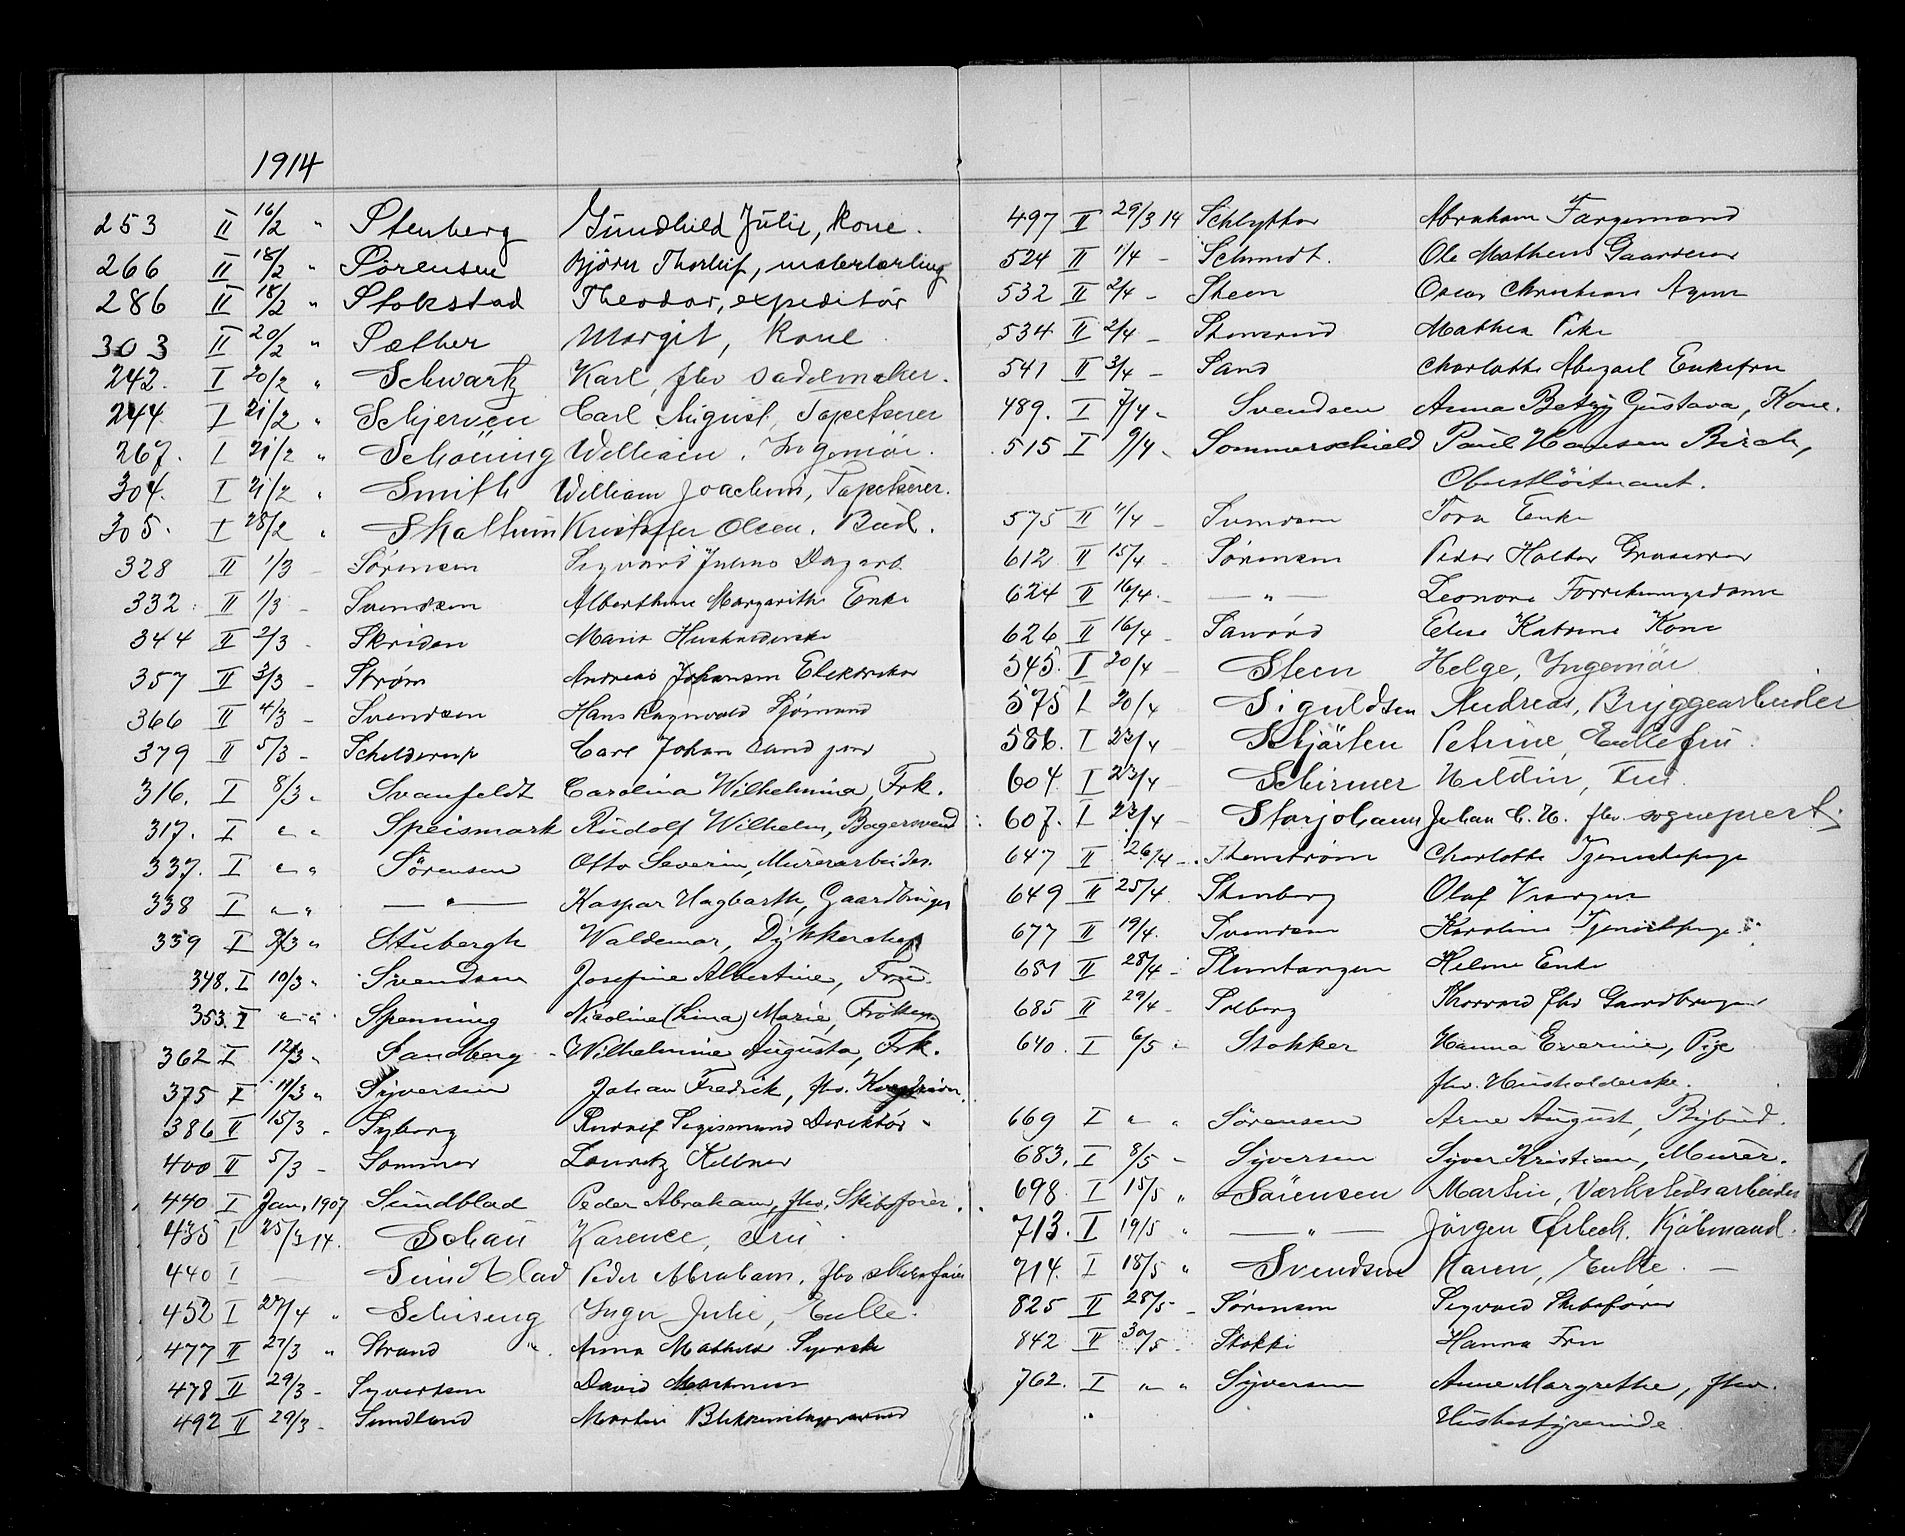 1914
253 II 16/2 " Stenberg Gundhild Julie, kone.
266 II 18/2 " Sörensen Björn Thorleif, malerlærling
286 II 18/2 " Stokstad Theodor, expeditör
303 II 20/2 " Sæther Margit, kone
242. I 20/2 " Schwartz Karl, fhv sadelmaker.
244. I 21/2 " Schjerven Carl August, Tapetserer
267. I 21/2 " Schöning William, Ingeniör.
304. I 21/2 " Smith William Joachim, Tapetserer.
305. I 28/2 " Skallum Kristoffer Olsen, Bud.
328 II 1/3 - Sörensen Sigvard Julius Dagarb.
332 II 1/3 - Svendsen Alberthine Margarithe Enke
344 II 2/3 - Skriden Marie Husholderske
357 II 3/3 - Strøm Andreas Johansen
366 II 4/3 - Svendsen Hans Ragnvald Sjömand
379 II 5/3 - Schelderup Carl Johan Sand
316. I 8/3 " Svanfeldt Carolina Wilhelmina Frk.
317. I " " Speismark Rudolf Wilhelm, Bagersvend
337. I " " Sörensen Otto Severin, Murerarbeider.
338 I " " — " — Kaspar Hagbarth, Gaardbruger
339 I 9/3 " Stubergh Waldemar,
348. I 10/3 " Svendsen Josefine Albertine, Fru.
353. I " " Spenning Nicoline (Lina) Marie, Fröken
362 I 12/3 " Sandberg Wilhelmine Augusta, Frk.
375 I 11/3 " Syversen Johan Fredrik, fhv.
386 II 15/3 " Syberg Rudolf Sigismund Direktör
400 II 5/3 - Sommer Lauritz Kellner
440 I Jan. 1907 Sundblad Peder Abraham, fhv. Skibsförer.
435 I 25/3 14. Schau Karence, Fru
440 I — Sundblad Peder Abraham, fhv skibsförer
452 I 27/4 " Schiseng Inga Julie, Enke.
477 II 27/3 " Strand " Anna Mathilde Syerske
478 II 29/3 - Syvertsen David
492 II 29/3 - Sundland Martin
497 II 29/3 14 Schlytter Abraham Fargemand
524 II 1/4 - Schmidt. Ole Mathens Gaardeier
532 II 2/4 - Steen Oscar Christian Agent
534 II 2/4 - Mathea Pike
541 II 3/4 - Sand Charlotte Abigael Enkefru
489. I 7/4 " Svendsen Anna Betsy Gustava, Kone.
515 I 9/4 " Sommerschield Paul Hansen Birch,
Oberstlöitnant.
575 II 11/4 - Svendsen Tora Enke
612 II 15/4 - Sörensen Peder Holter
624 II 16/4 - — " — Leonora Forretningsdame
626 II 16/4 - Elise Katrine Kone
545. I 20/4 - Steen Helge, Ingeniör
575 I 20/4 Siguldsen Andreas, Bryggearbeider
586. I 23/4 - Petrine, Enkefru
604. I 23/4 - Schirmer Fru.
607. I 23/4 - Storjohann Johan C. H. fhv. sogneprest.
647 II 26/4 - Stenström Charlotte Tjenestepige
649 II 25/4 Stenberg Olaf
677 II 19/4. Svendsen Karoline Tjenestepige
681 II 28/4 - Slemtangen Helene Enke
685 II 29/4 - Solberg Thorvald fhv Gaardbruger
640. I 6/5 " Stokker Hanna Everine, Pige
fhv. Husholderske.
669 I " " Sörensen Arne August, Bybud.
683. I 8/5 " Syversen Syver Kristian, Murer.
698. I 15/5 " Sörensen Martin, Værkstedsarbeider
713. I 19/5 " — " — Jörgen Ørbeck. Kjöbmand.
714. I 18/5 " Svendsen Karen, Enke. —
825 II 28/5 - Sörensen Sigvald Skibsförer
842 II 30/5 - Stokke Hanna Fru
762. I " " Syversen Anne Margrethe, fhv.
" Husbestyrerinde